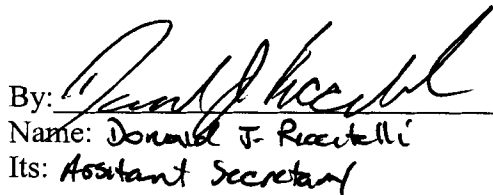 By:
Name: Donald J. Riccitelli
Its: Assistant Secretary